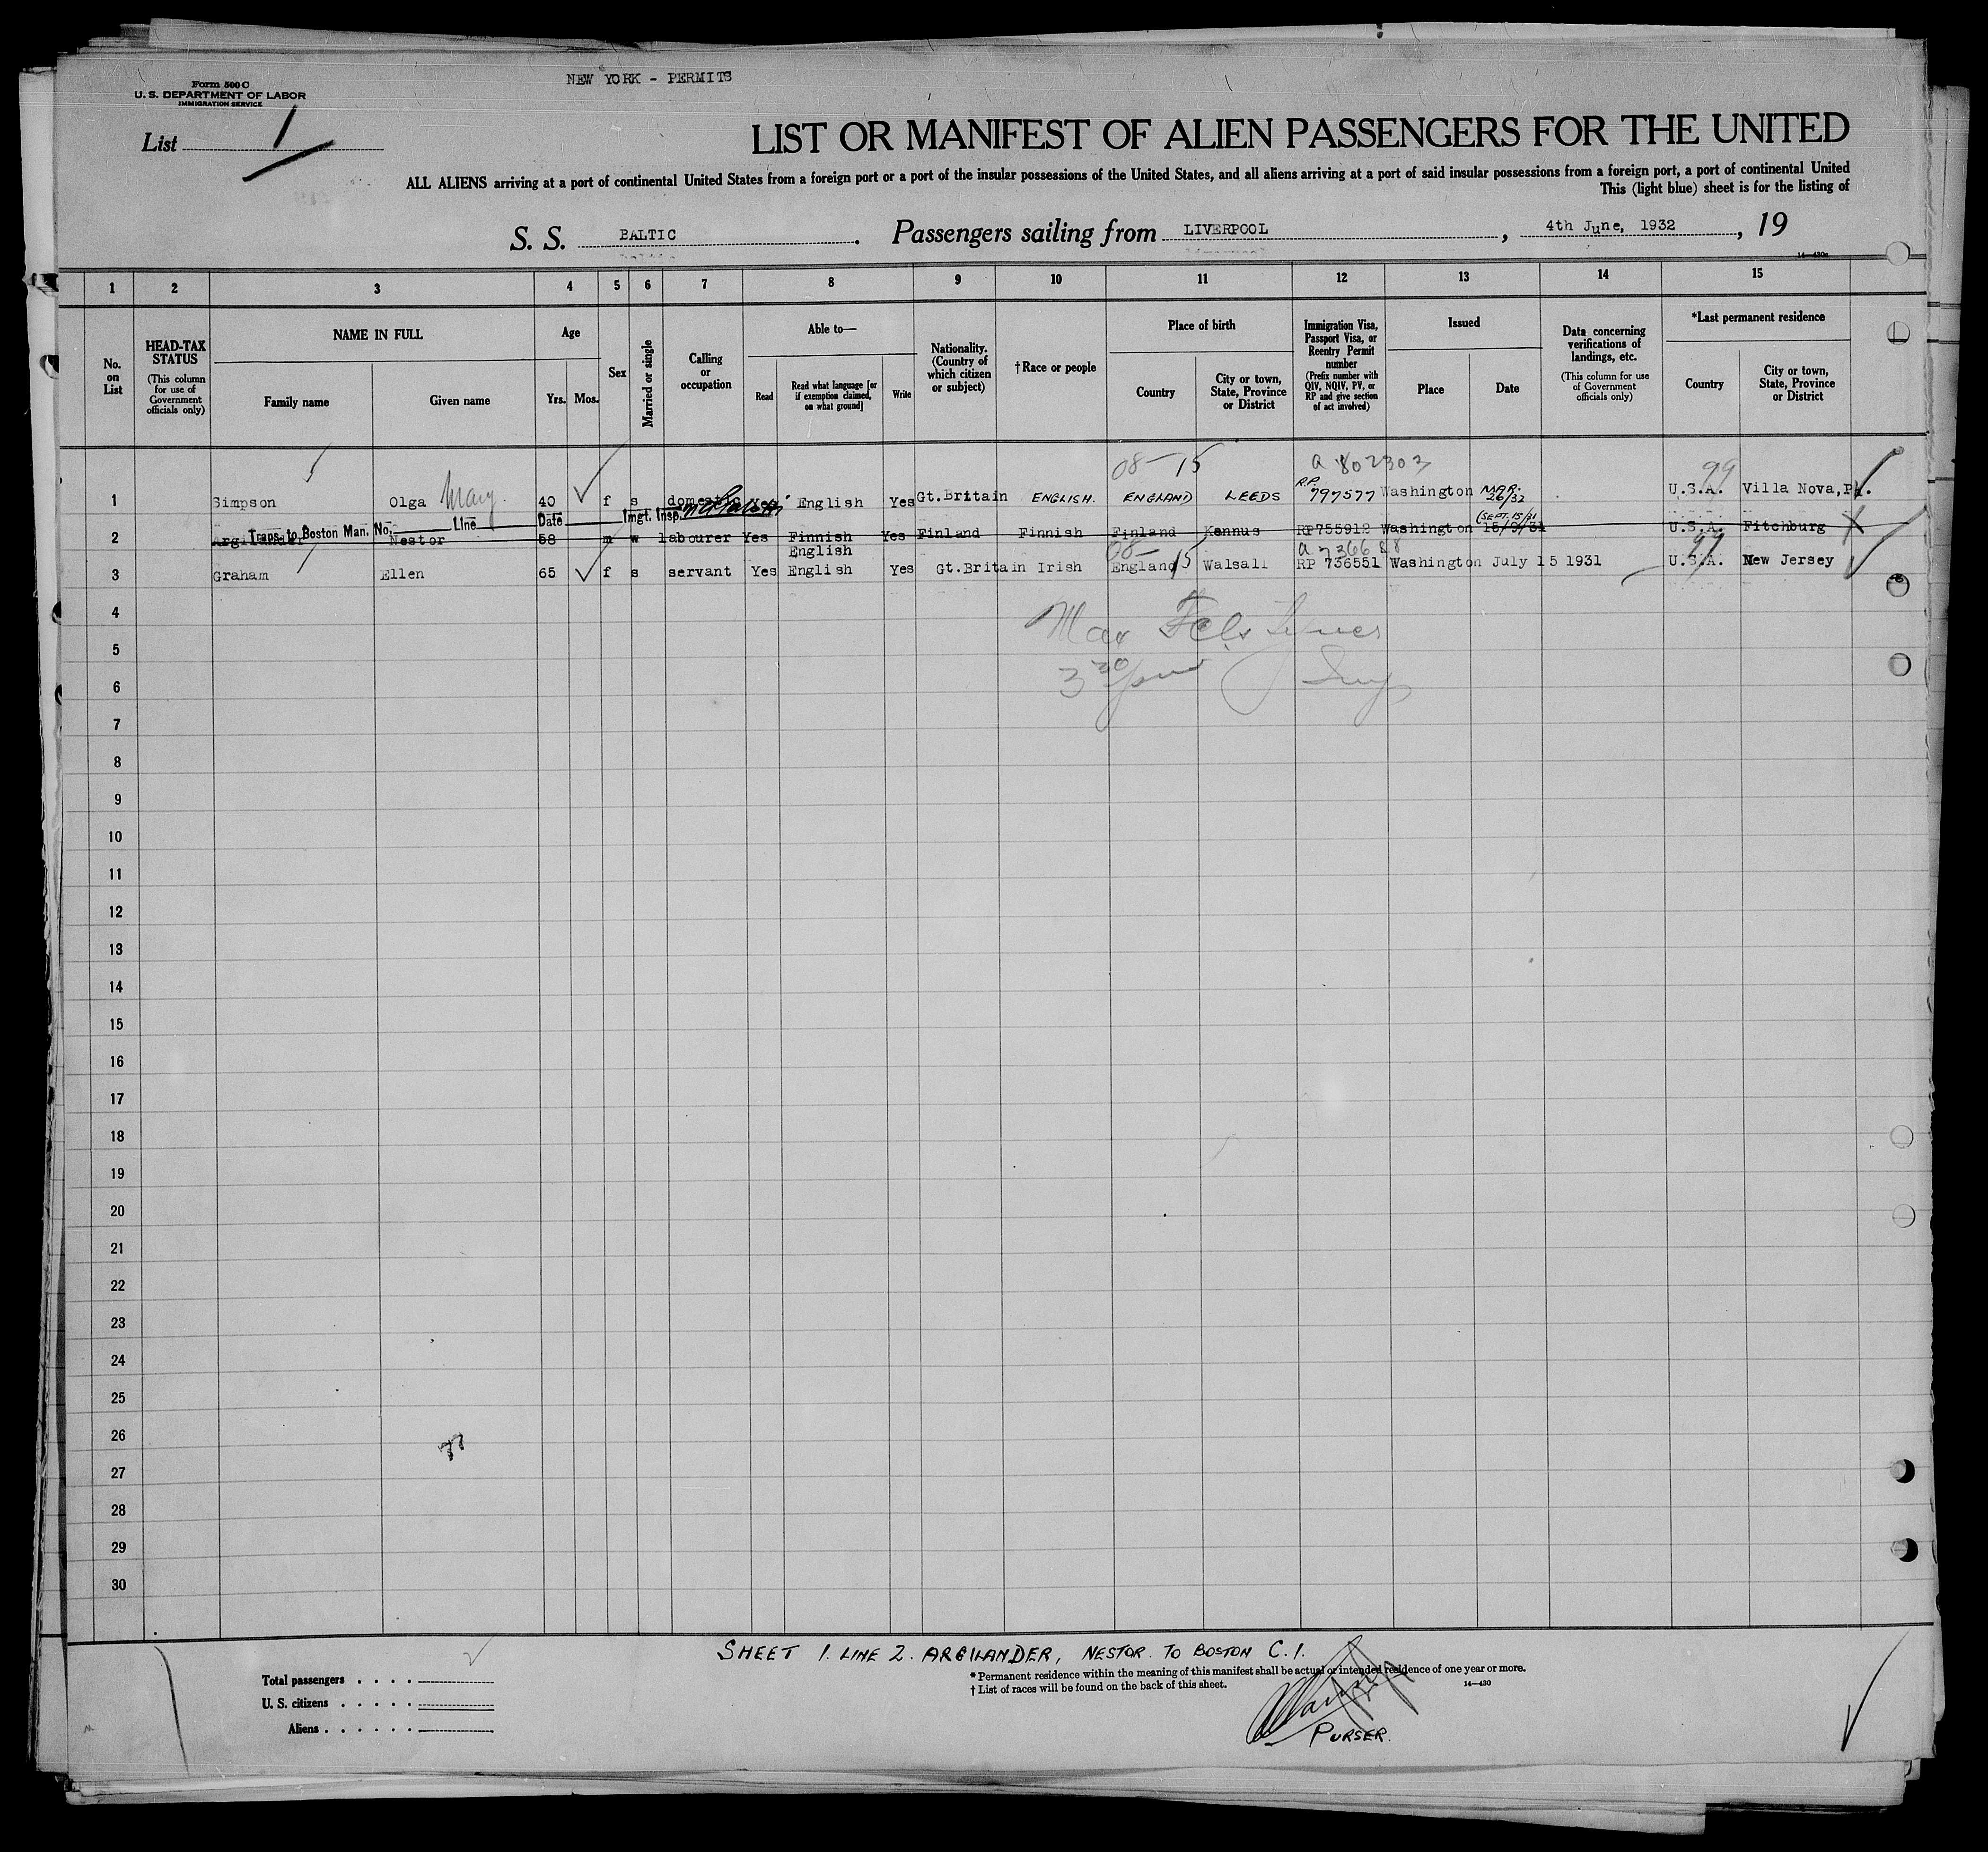 Form 500 C
U. S. DEPARTMENT OF LABOR
IMMIGRATION SERVICE
NEW YORK - PERMITS
List 1
LIST OR MANIFEST OF ALIEN PASSENGERS FOR THE UNITED
ALL ALIENS arriving at a port of continental United States from a foreign port or a port of the insular possessions of the United States, and all aliens arriving at a port of said insular possessions from a foreign port, a port of continental United
This (light blue) sheet is for the listing of
S. S. BALTIC. Passengers sailing from LIVERPOOL, 4th June, 1932, 19
14—430c
1 2 3 4 5 6 7 8 9 10 11 12 13 14 15
No. on List
HEAD-TAX STATUS
(This column for use of Government officials only)
NAME IN FULL
Family name
Given name
Age
Yrs. Mos.
Sex
Married or single
Calling or occupation
Able to—
Read
Read what language [or if exemption claimed, on what ground]
Write
Nationality. (Country of which citizen or subject)
†Race or people
Place of birth
Country
City or town, State, Province or District
Immigration Visa, Passport Visa, or Reentry Permit number
(Prefix number with QIV, NQIV, PV, or RP and give section of act involved)
Issued
Place
Date
Data concerning verifications of landings, etc.
(This column for use of Government officials only)
*Last permanent residence
Country
City or town, State, Province or District
08- 15 a 802303 99
1 Simpson Olga Mary. 40 f s domestic Yes English Yes Gt.Britain ENGLISH. ENGLAND LEEDS R.P. 797577 Washington MAR. 26/32 U.S.A. Villa Nova, Pa.
Trans. to Boston Man. No. Line Date Imgt. Insp.
(SEPT. 15/31
2 Argilander Nestor 58 m w labourer Yes Finnish Yes Finland Finnish Finland Kannus RP755912 Washington 15/9/31 U.S.A. Fitchburg
English 08- 15 a 736628 99
3 Graham Ellen 65 f s servant Yes English Yes Gt.Britain Irish England Walsall RP 736551 Washington July 15 1931 U.S.A. New Jersey
4
5
3 30 pm
6
7
8
9
10
11
12
13
14
15
16
17
18
19
20
21
22
23
24
25
26
27
28
29
30
SHEET 1. LINE 2. ARGILANDER, NESTOR. TO BOSTON C.I.
Total passengers
U. S. citizens
Aliens
* Permanent residence within the meaning of this manifest shall be actual or intended residence of one year or more.
† List of races will be found on the back of this sheet.
14—430
PURSER.